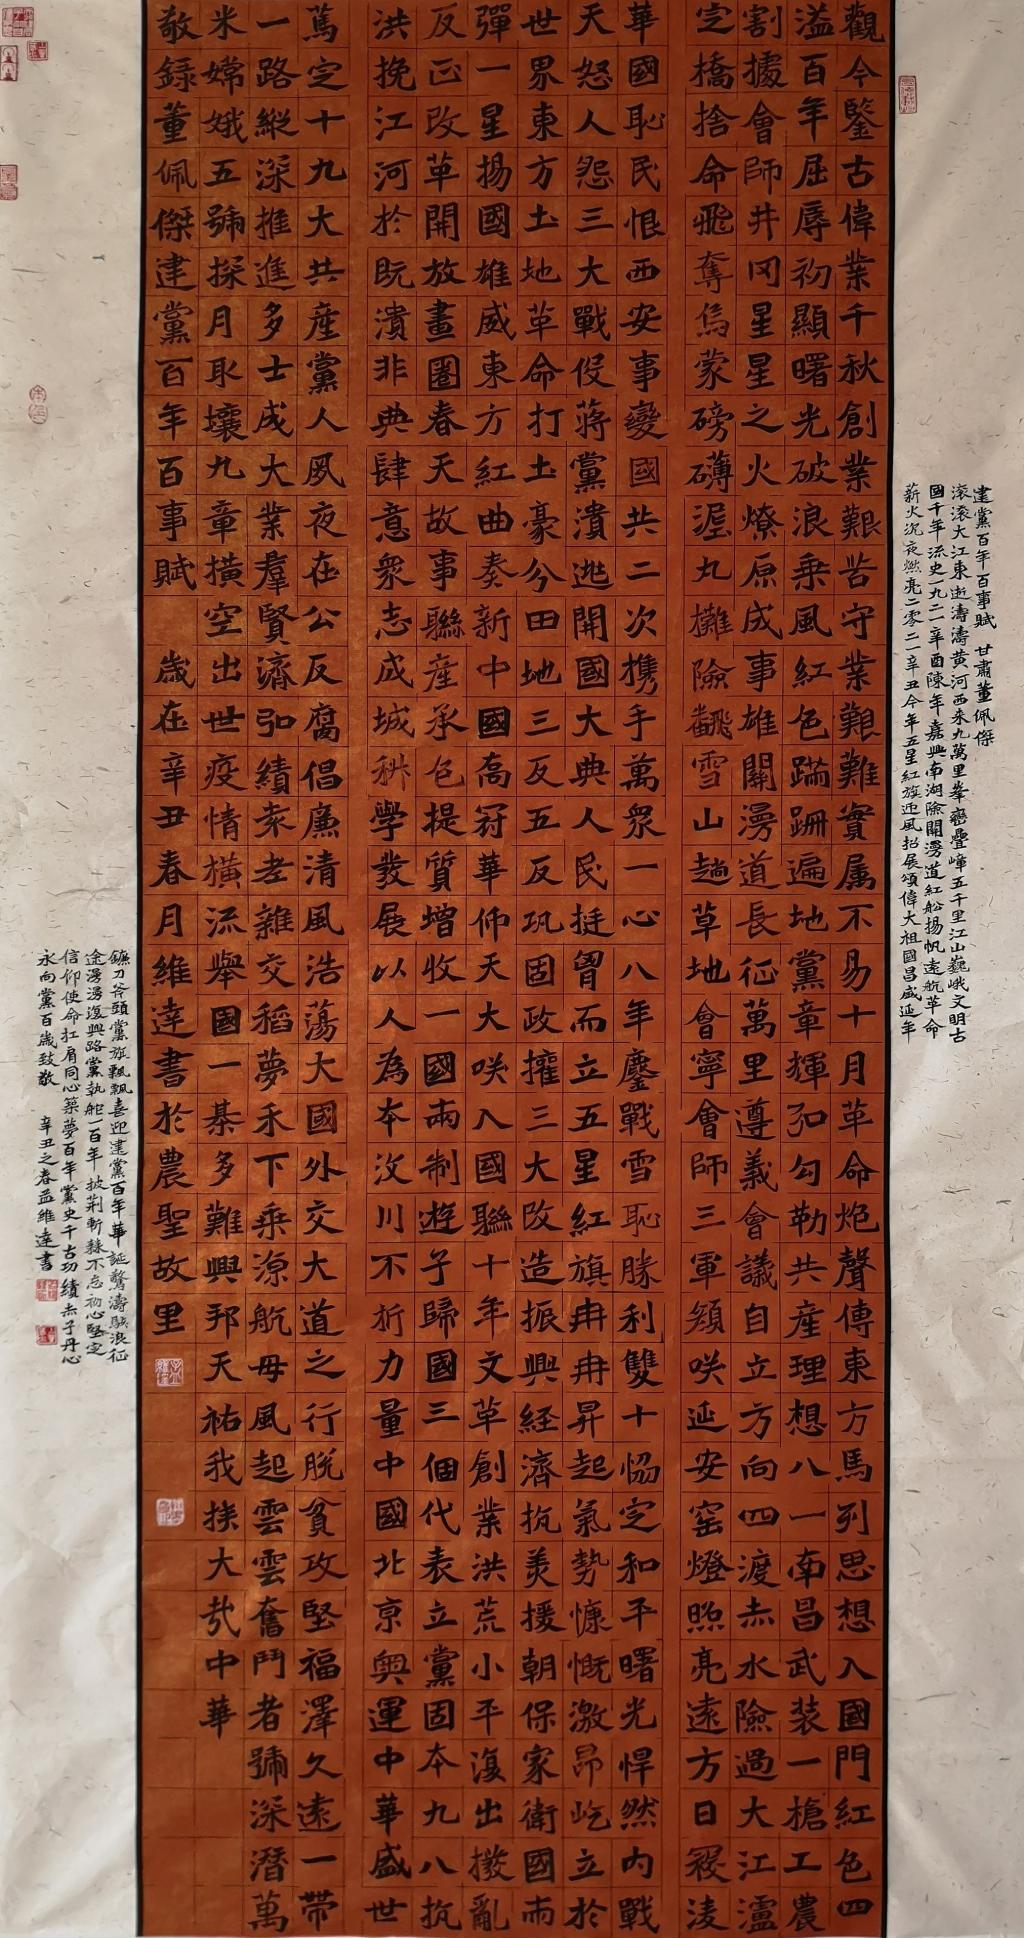 觀今鑒古偉業千秋創業艱苦守業艱難實属不易十月革命炮聲傳東方馬列思想入國門紅色四
溢百年屈辱初顯曙光破浪乘風紅色蹣跚遍地黨章輝弘勾勒共産理想八一南昌武装一槍工農
割據會師井冈星星之火燎原成事雄關漫道長征萬里遵義會議自立方向四渡赤水險過大江瀘
定橋捨命飛奪烏蒙磅礴泥丸攤險翻雪山趟草地會寧會師三軍頬咲延安窑燈照亮遠方日寇淩
華國恥民恨西安事變國共二次携手萬衆一心八年鏖戰雪恥勝利雙十協定和平曙光悍然内戰
天怒人怨三大戰役蔣黨潰逃開國大典人民挺胷而立五星紅旗冉冉昇起氣勢慷慨激昂屹立於
世界東方土地革命打土豪分田地三反五反巩固政權三大改造振興経濟抗美援朝保家衛國兩
彈一星揚國雄威東方紅曲奏新中國高冠華仲天大咲入國聯十年文革創業洪荒小平復出撥亂
反正改革開放畫圈春天故事聯産承包提質增收一國兩制遊子歸國三個代表立黨固本九八抗
洪挽江河於既潰非典肆意衆志成城科學發展以人為本汶川不折力量中國北京奥運中華盛世
篤定十九大共産黨人夙夜在公反腐倡廉清風浩蕩大國外交大道之行脱貧攻堅福澤久遠一帶
一路縱深推進多士成大業羣賢濟弘績袁老雜交稻夢禾下乘凉航母風起雲雲奮鬥者號深潛萬
米嫦娥五號探月取壤九章横空出世疫情横流舉國一棊多難興邦天祐我族大哉中華
敬録董佩傑建黨百年百事賦 歲在辛丑春月維達書於農聖故里
建黨百年百事賦 甘肅董佩傑
滚滚大江東逝濤濤黄河西来九萬里峯巒疊嶂五千里江山巍峨文明古
國千年流史一九二一辛酉陳年嘉興南湖險開漫道紅船揚帆遠航革命
薪火沉夜燃亮二零二一辛丑今年五星紅旗迎風招展頌偉大祖國昌盛延年
鐮刀斧頭黨旗飄飄喜迎建黨百年華誕驚濤駭浪征
途漫漫復興路黨執舵一百年披荆斬棘不忘初心堅定
信仰使命扛肩同心築夢百年黨史千古功績赤子丹心
永向黨百歲致敬 辛丑之春孟維達書